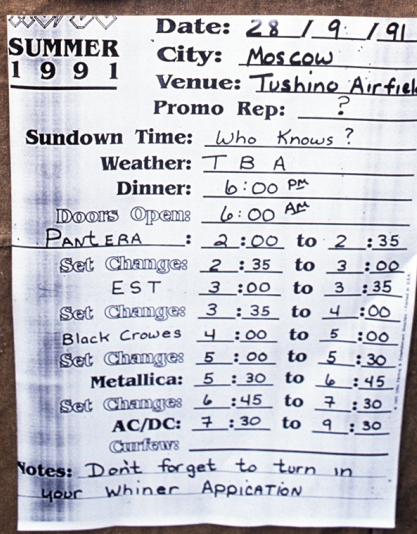 SUMMER
1991
Date: 28 / 9 / 91
City: Moscow
Venue: Tushino Airfiel
Promo Rep: ?
Sundown Time: Who Knows?
Weather: T B A
Dinner: 6:00 PM
Doors Open: 6:00 AM
PANTERA : 2:00 to 2:35
Set Change: 2:35 to 3:00
EST 3:00 to 3:35
Set Change: 3:35 to 4:00
Black Crowes 4:00 to 5:00
Set Change: 5:00 to 5:30
Metallica: 5:30 to 6:45
Set Change: 6:45 to 7:30
AC/DC: 7:30 to 9:30
Curfew:
Notes: Dont forget to turn in
your Whiner APPICATION